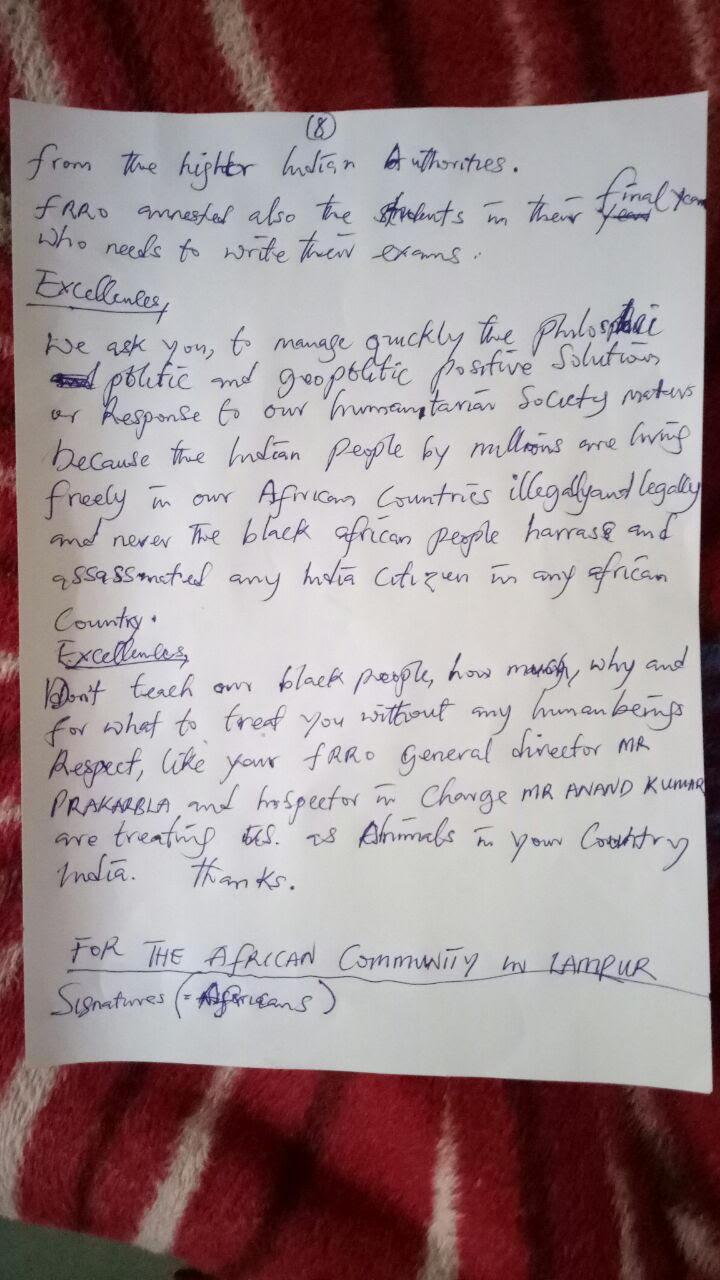 (8)
from the higher Indian Authorities.
FRRO arrested also the students in their final year
who needs to write their exams.
Excellences,
We ask you, to manage quickly the
politic and geopolitic positive Solutions
or Response to our humanitarian Society maters
because the Indian People by millions are living
freely in our African Countries illegally and legally
and never the black african people harrass and
assassinated any India Citizen in any african
Country.
Excellences,
Don't teach our black people, how much, why and
for what to treat you without any human beings
Respect, like your FRRO General director MR
PRAKARBLA and Inspector in Charge MR ANAND KUMAR
are treating us. as Animals in your Country
India. Thanks.
FOR THE AFRICAN COMMUNITY IN LAMPUR
Signatures (= Africans)